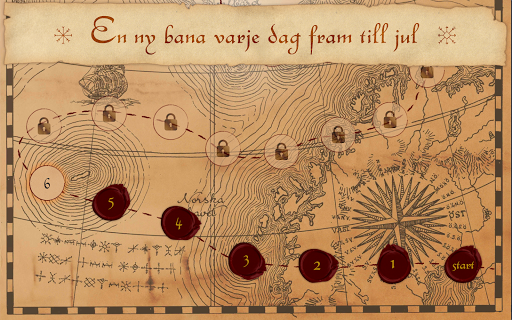 En ny bana varje dag fram till jul
6
5
Norska
4
3
2
1
start